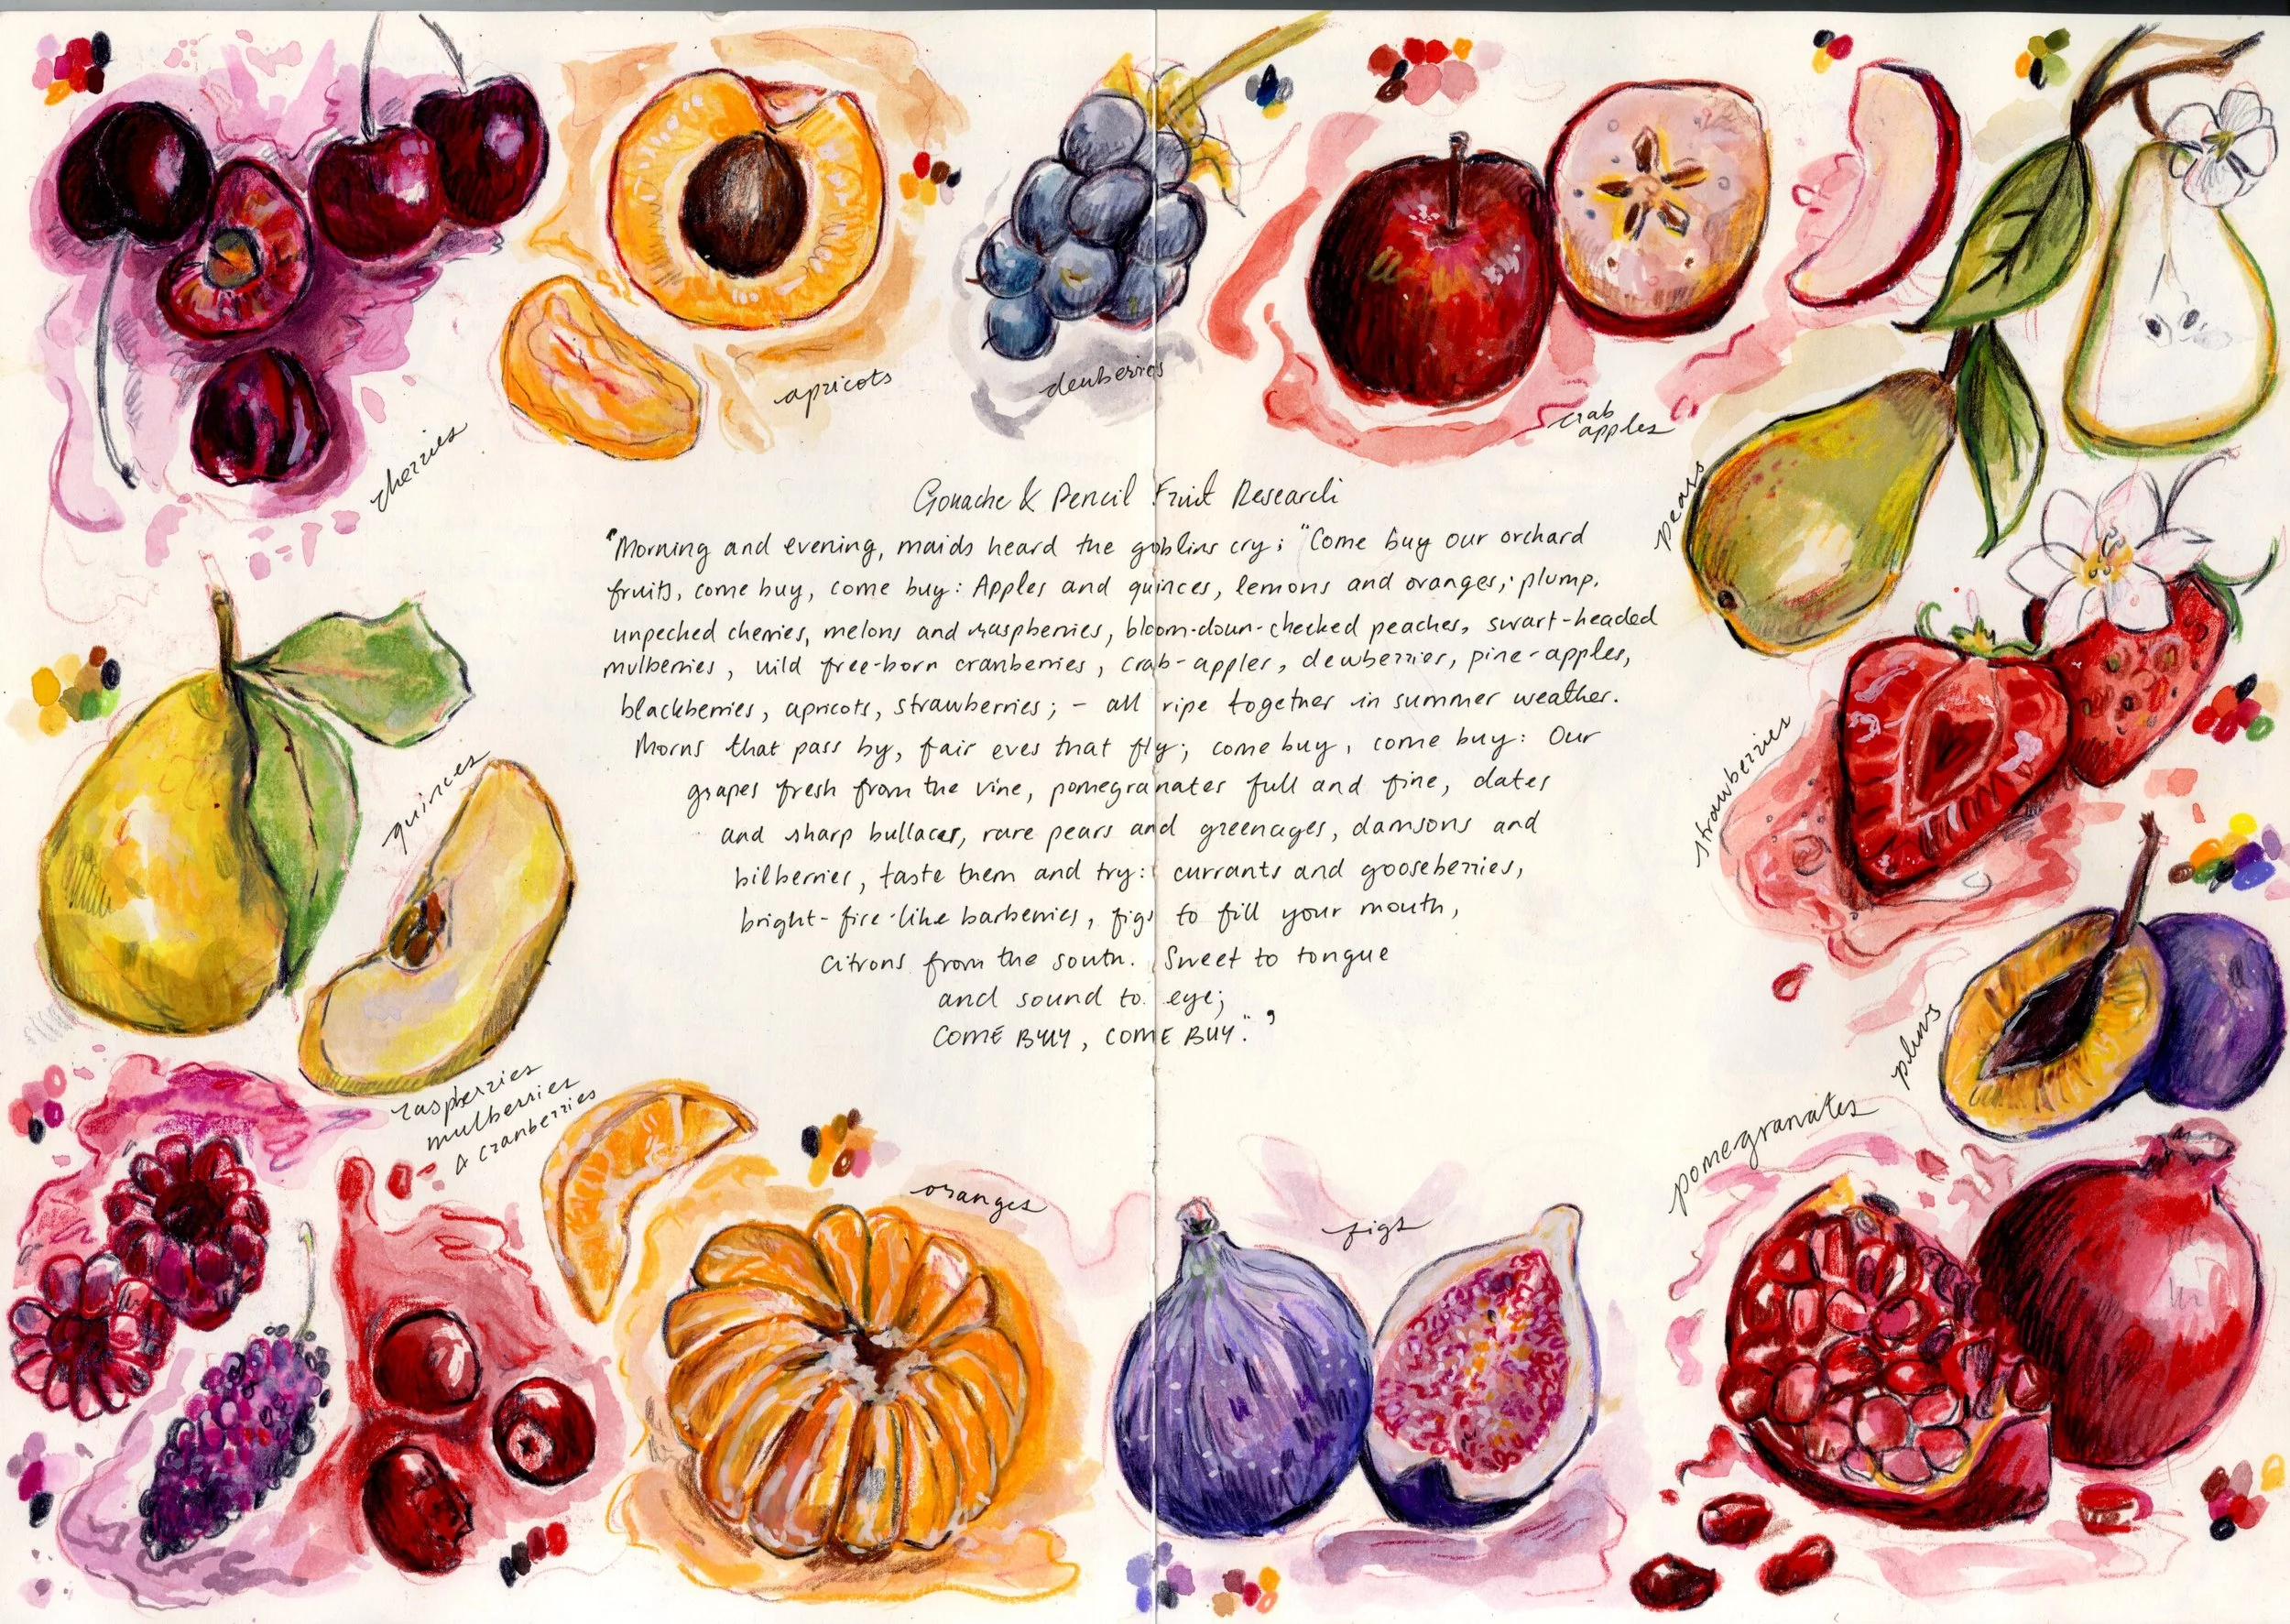 cherries
apricots
dewberries
crab
apples
pears
Gouache & Pencil Fruit Research
"Morning and evening, maids heard the goblins cry: "Come buy our orchard
fruits, come buy, come buy: Apples and quinces, lemons and oranges, plump.
unpeched cherries, melons and raspberries, bloom-doun-checked peaches, swart-headed
mulberries, wild free-born cranberries, crab-apples, dewberries, pine-apples,
blackberries, apricots, strawberries; - all ripe together in summer weather.
Morns that pass by, fair eves that fly; come buy, come buy: Our
grapes fresh from the vine, pomegranates full and fine, dates
and sharp bullaces, rare pears and greengages, damsons and
bilberries, taste them and try: currants and gooseberries,
bright-fire-like barberries, figs to fill your mouth,
citrons from the south. Sweet to tongue
and sound to eye;
COME BUY, COME BUY." '
strawberries
quinces
plums
raspberries
mulberries
& cranberries
pomegranates
oranges
figs